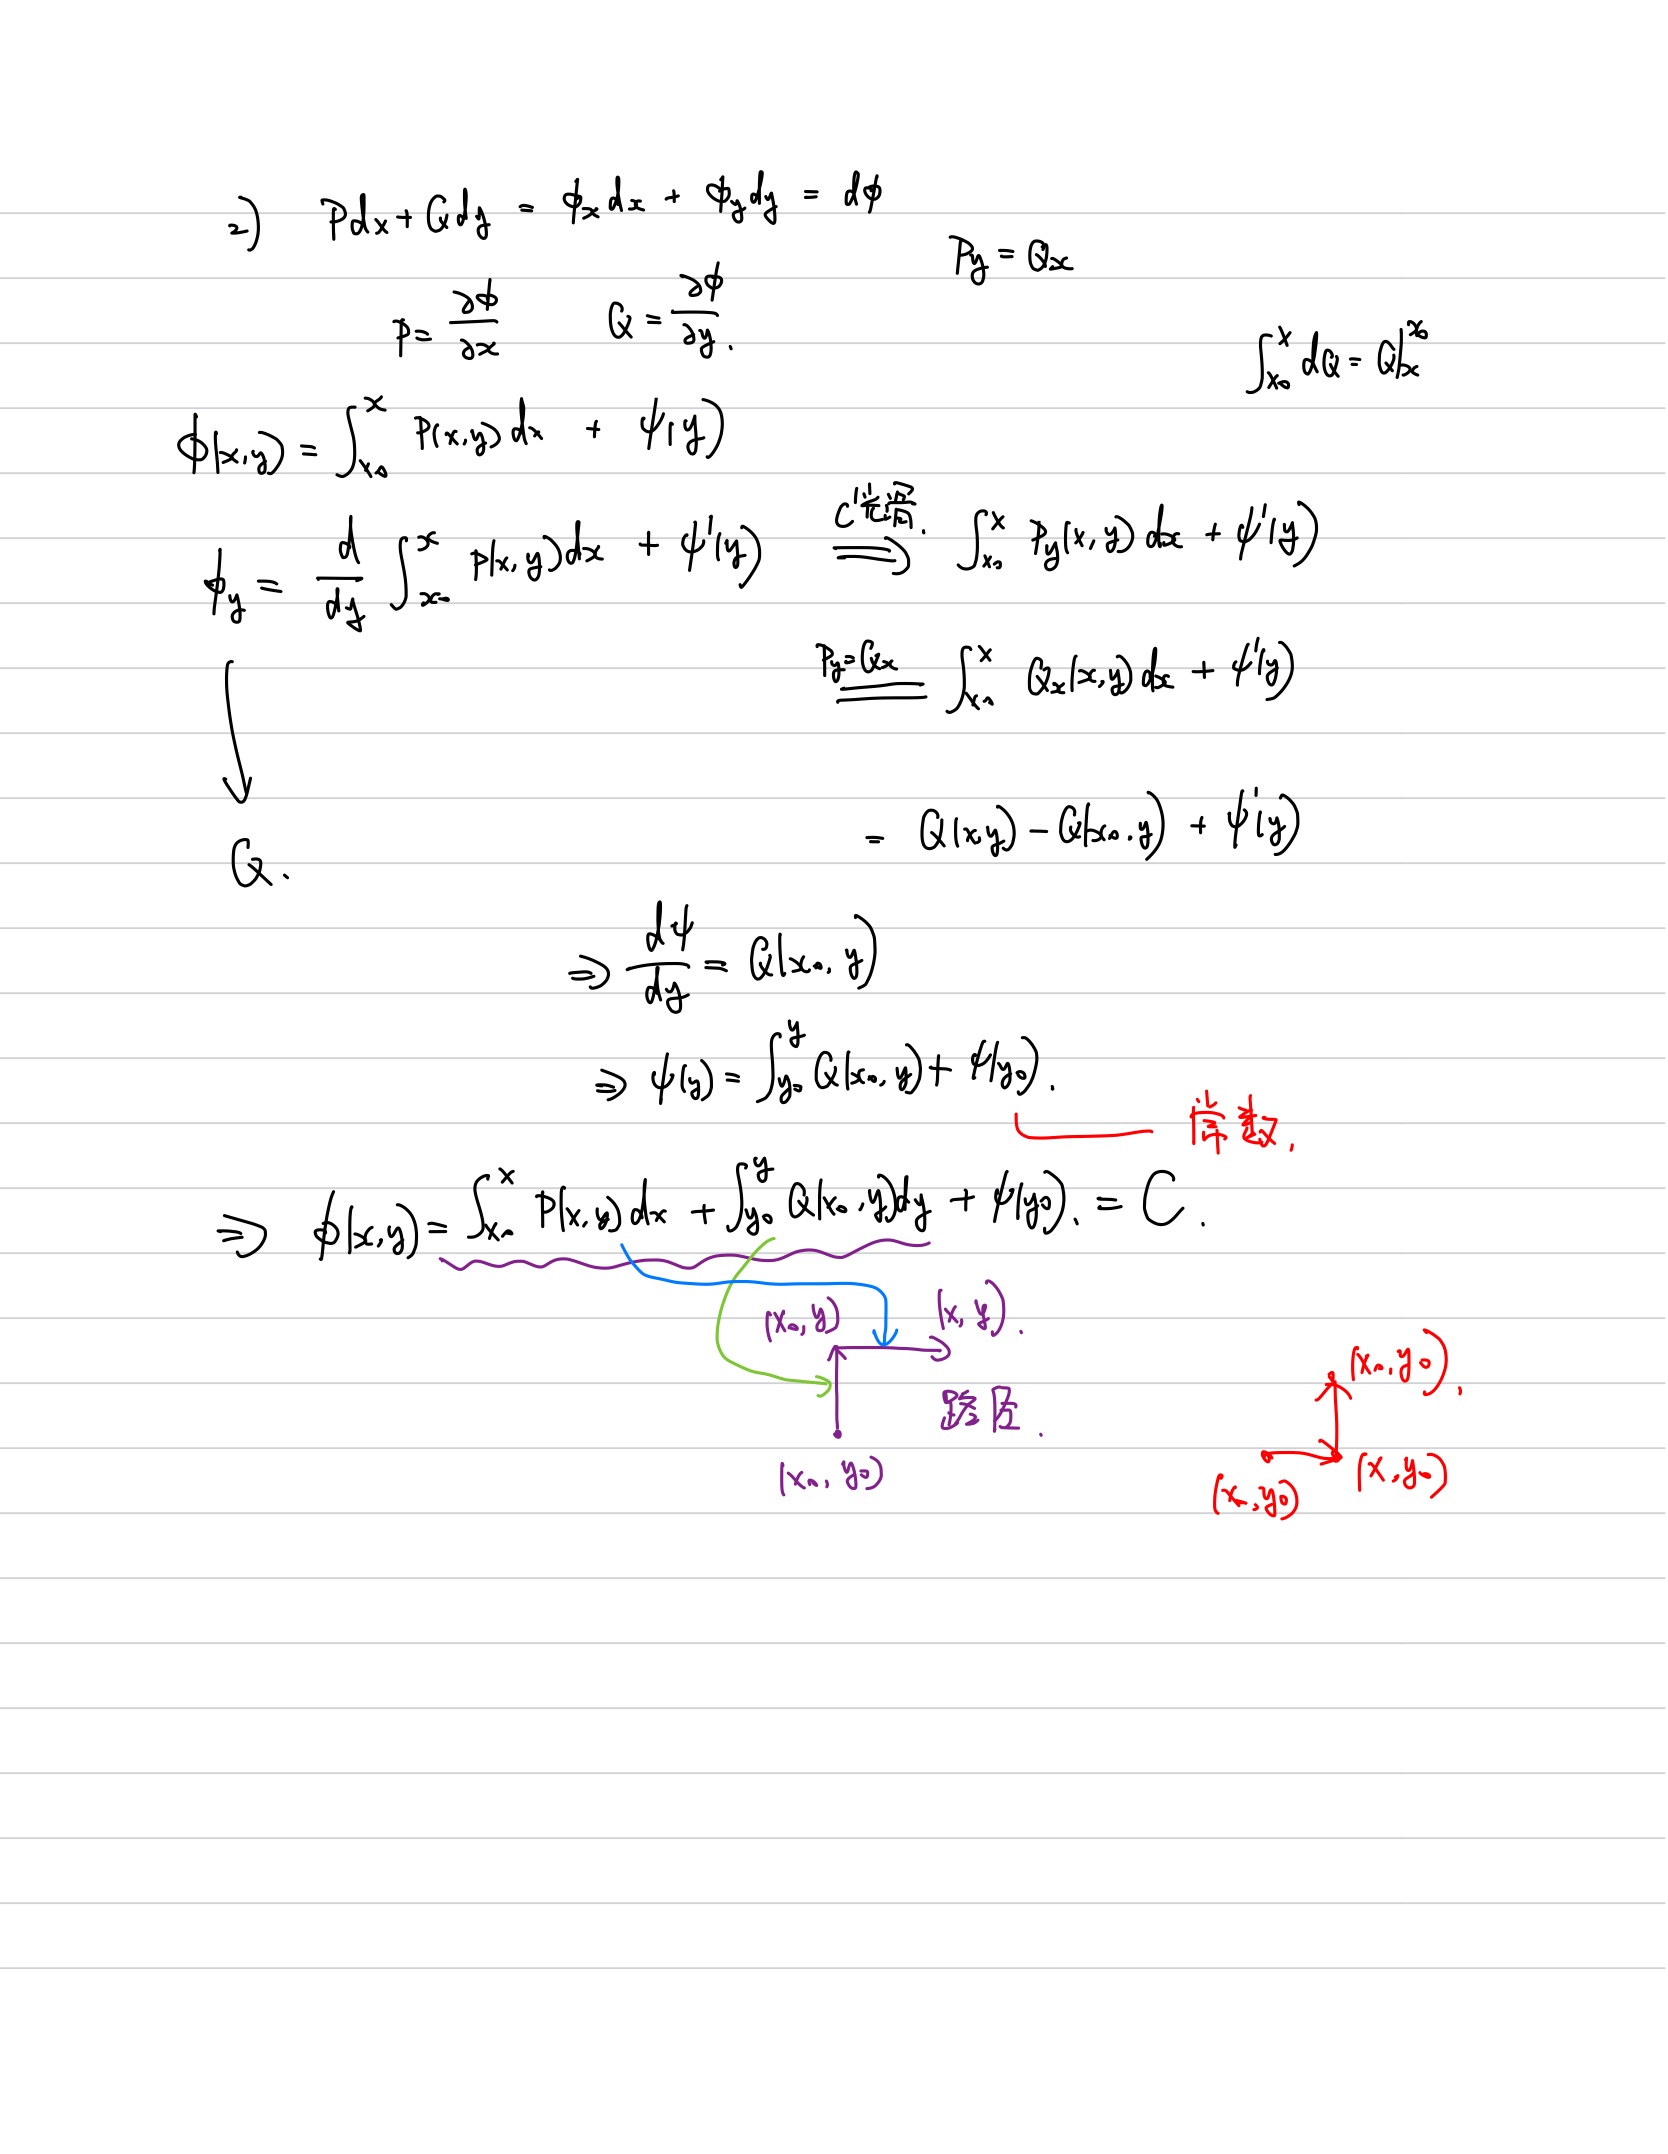 2) Pdx + Qdy = ϕₓdx + ϕ_y dy = dϕ
P_y = Qₓ
P = ∂ϕ/∂x Q = ∂ϕ/∂y.
∫_{x₀}^{x} dQ = Q|_{x}^{x₀}
ϕ(x,y) = ∫_{x₀}^{x} P(x,y)dx + ψ(y)
ϕ_y = d/dy ∫_{x₀}^{x} P(x,y)dx + ψ'(y) ⟹ ∫_{x₀}^{x} P_y(x,y)dx + ψ'(y)
P_y=Qₓ ∫_{x₀}^{x} Qₓ(x,y)dx + ψ'(y)
= Q(x,y) − Q(x₀,y) + ψ'(y)
Q.
⇒ dψ/dy = Q(x₀,y)
⇒ ψ(y) = ∫_{y₀}^{y} Q(x₀,y) + ψ(y₀).
常数.
⇒ ϕ(x,y) = ∫_{x₀}^{x} P(x,y)dx + ∫_{y₀}^{y} Q(x₀,y)dy + ψ(y₀). = C.
(x₀,y) (x,y).
路径.
(x₀,y₀)
(x₀,y₀).
(x,y₀)
(x,y₀)